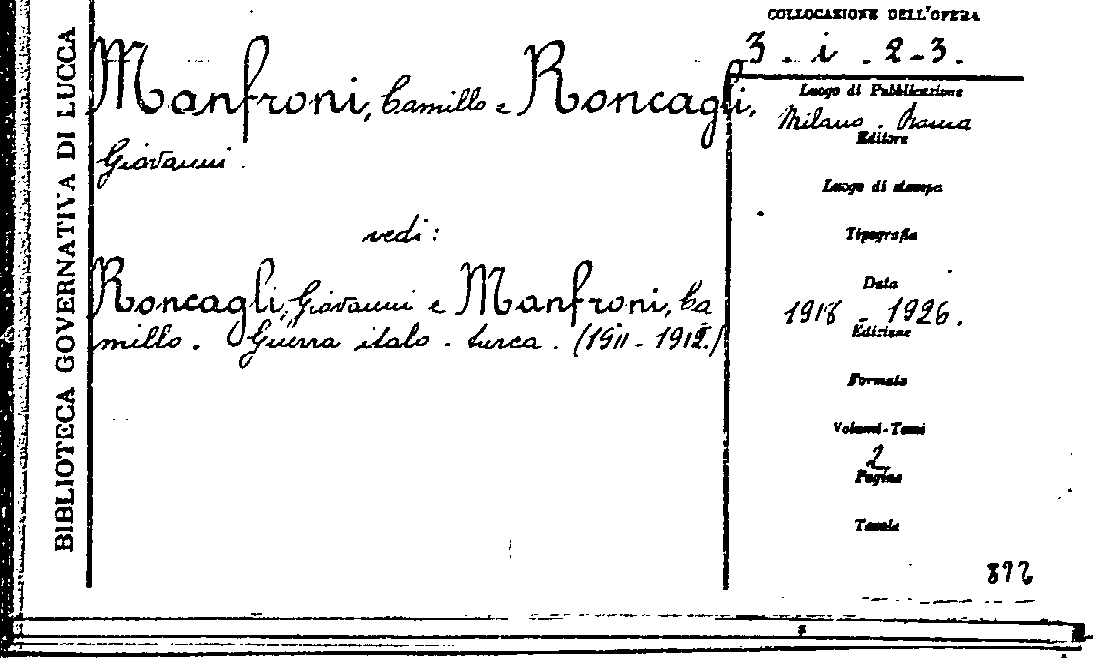 BIBLIOTECA GOVERNATIVA DI LUCCA
Manfroni, Camillo e Roncagli,
Giovanni.
vedi:
Roncagli, Giovanni e Manfroni, Ca
millo. Guerra italo - turca. (1911 - 1912.)
COLLOCAZIONE DELL'OPERA
3 - i - 2-3.
Luogo di Pubblicazione
Milano - Roma
Editore
Luogo di stampa
Tipografia
Data
1918 - 1926.
Edizione
Formato
Volumi-Tomi
2
Pagine
Tavole